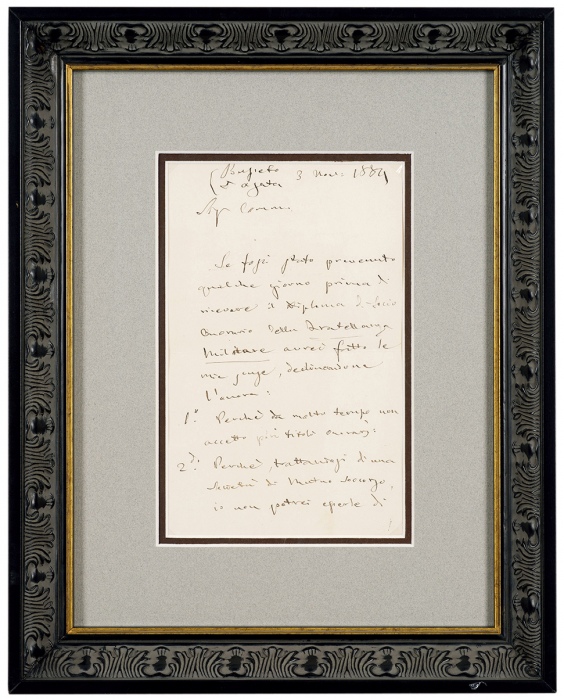 Busseto
S. Agata 3 Nov: 1884
Sig. Comm.
Se fossi stato prevenuto
qualche giorno prima di
ricevere il Diploma di Socio
Onorario della Fratellanza
Militare avrei fatto le
mie scuse, declinandone
l'onore:
1º Perchè da molto tempo non
accetto più titoli onorarj:
2º: Perchè, trattandosi di una
Società di Mutuo Soccorso,
io non potrei esserle di